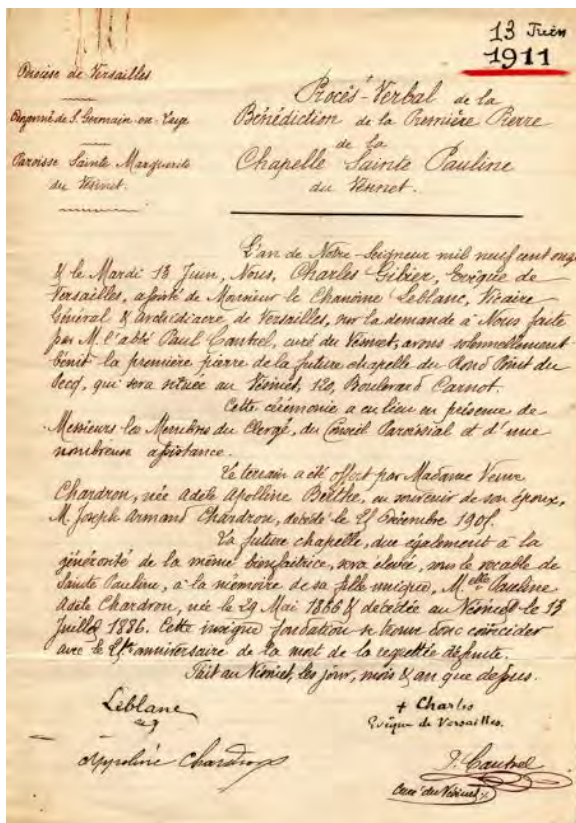 13 Juin
1911
Diocèse de Versailles
Doyenné de S. Germain-en-Laye
Paroisse Sainte Marguerite
du Vésinet.
Procès-Verbal de la
Bénédiction de la Première Pierre
de la
Chapelle Sainte Pauline
du Vésinet.
L'an de Notre-Seigneur mil neuf cent onze
& le Mardi 13 Juin, Nous, Charles Gibier, Evêque de
Versailles, assisté de Monsieur le Chanoine Leblanc, Vicaire
Général & archidiacre de Versailles, sur la demande à Nous faite
par M. l'abbé Paul Cautrel, curé du Vésinet, avons solennellement
bénit la première pierre de la future chapelle du Rond Point du
Pecq, qui sera située au Vésinet, 120, Boulevard Carnot.
Cette cérémonie a eu lieu en présence de
Messieurs les Membres du Clergé, du Conseil Paroissial et d'une
nombreuse assistance.
Le terrain a été offert par Madame Veuve
Chardron, née Adèle Apolline Berthe, en souvenir de son époux,
M. Joseph Armand Chardron, décédé le Décembre
La future chapelle, due également à la
générosité de la même bienfaitrice, sera élevée, sous le vocable de
Sainte Pauline, à la mémoire de sa fille unique, Melle Pauline
Adèle Chardron, née le 29 Mai 1866 & décédée au Vésinet le 13
Juillet 1886. Cette insigne fondation se trouve donc coïncider
avec le anniversaire de la mort de la regrettée défunte.
Fait au Vésinet, les jour, mois & an que dessus.
Leblanc
vg
+ Charles
Evêque de Versailles.
Appoline Chardron
P. Cautrel
Curé du Vésinet